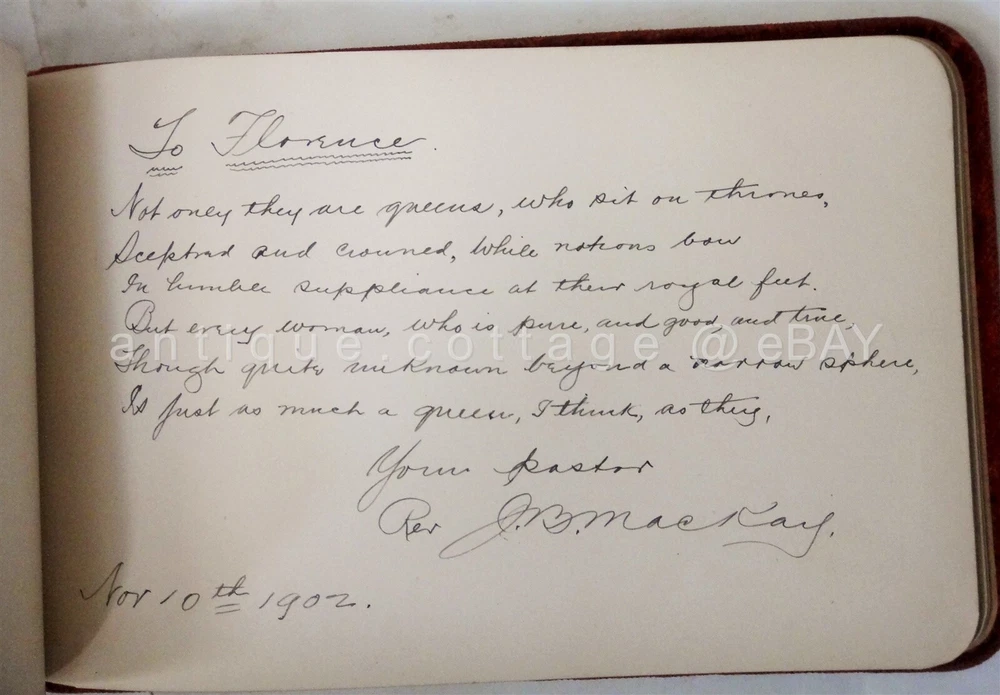 To Florence.
Not only they are queens, who sit on thrones,
Sceptred and crowned, while nations bow
In humble suppliance at their royal feet.
But every woman, who is pure, and good, and true,
antique.cottage @ eBAY
Though quite unknown beyond a narrow sphere,
Is just as much a queen, I think, as they,
Your pastor
Rev J.B. MacKay.
Nov 10th 1902.